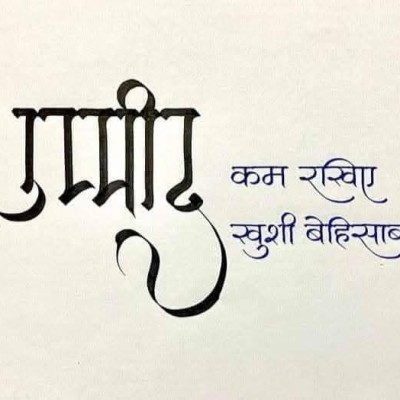 उम्मीद
कम रखिए
खुशी बेहिसाब